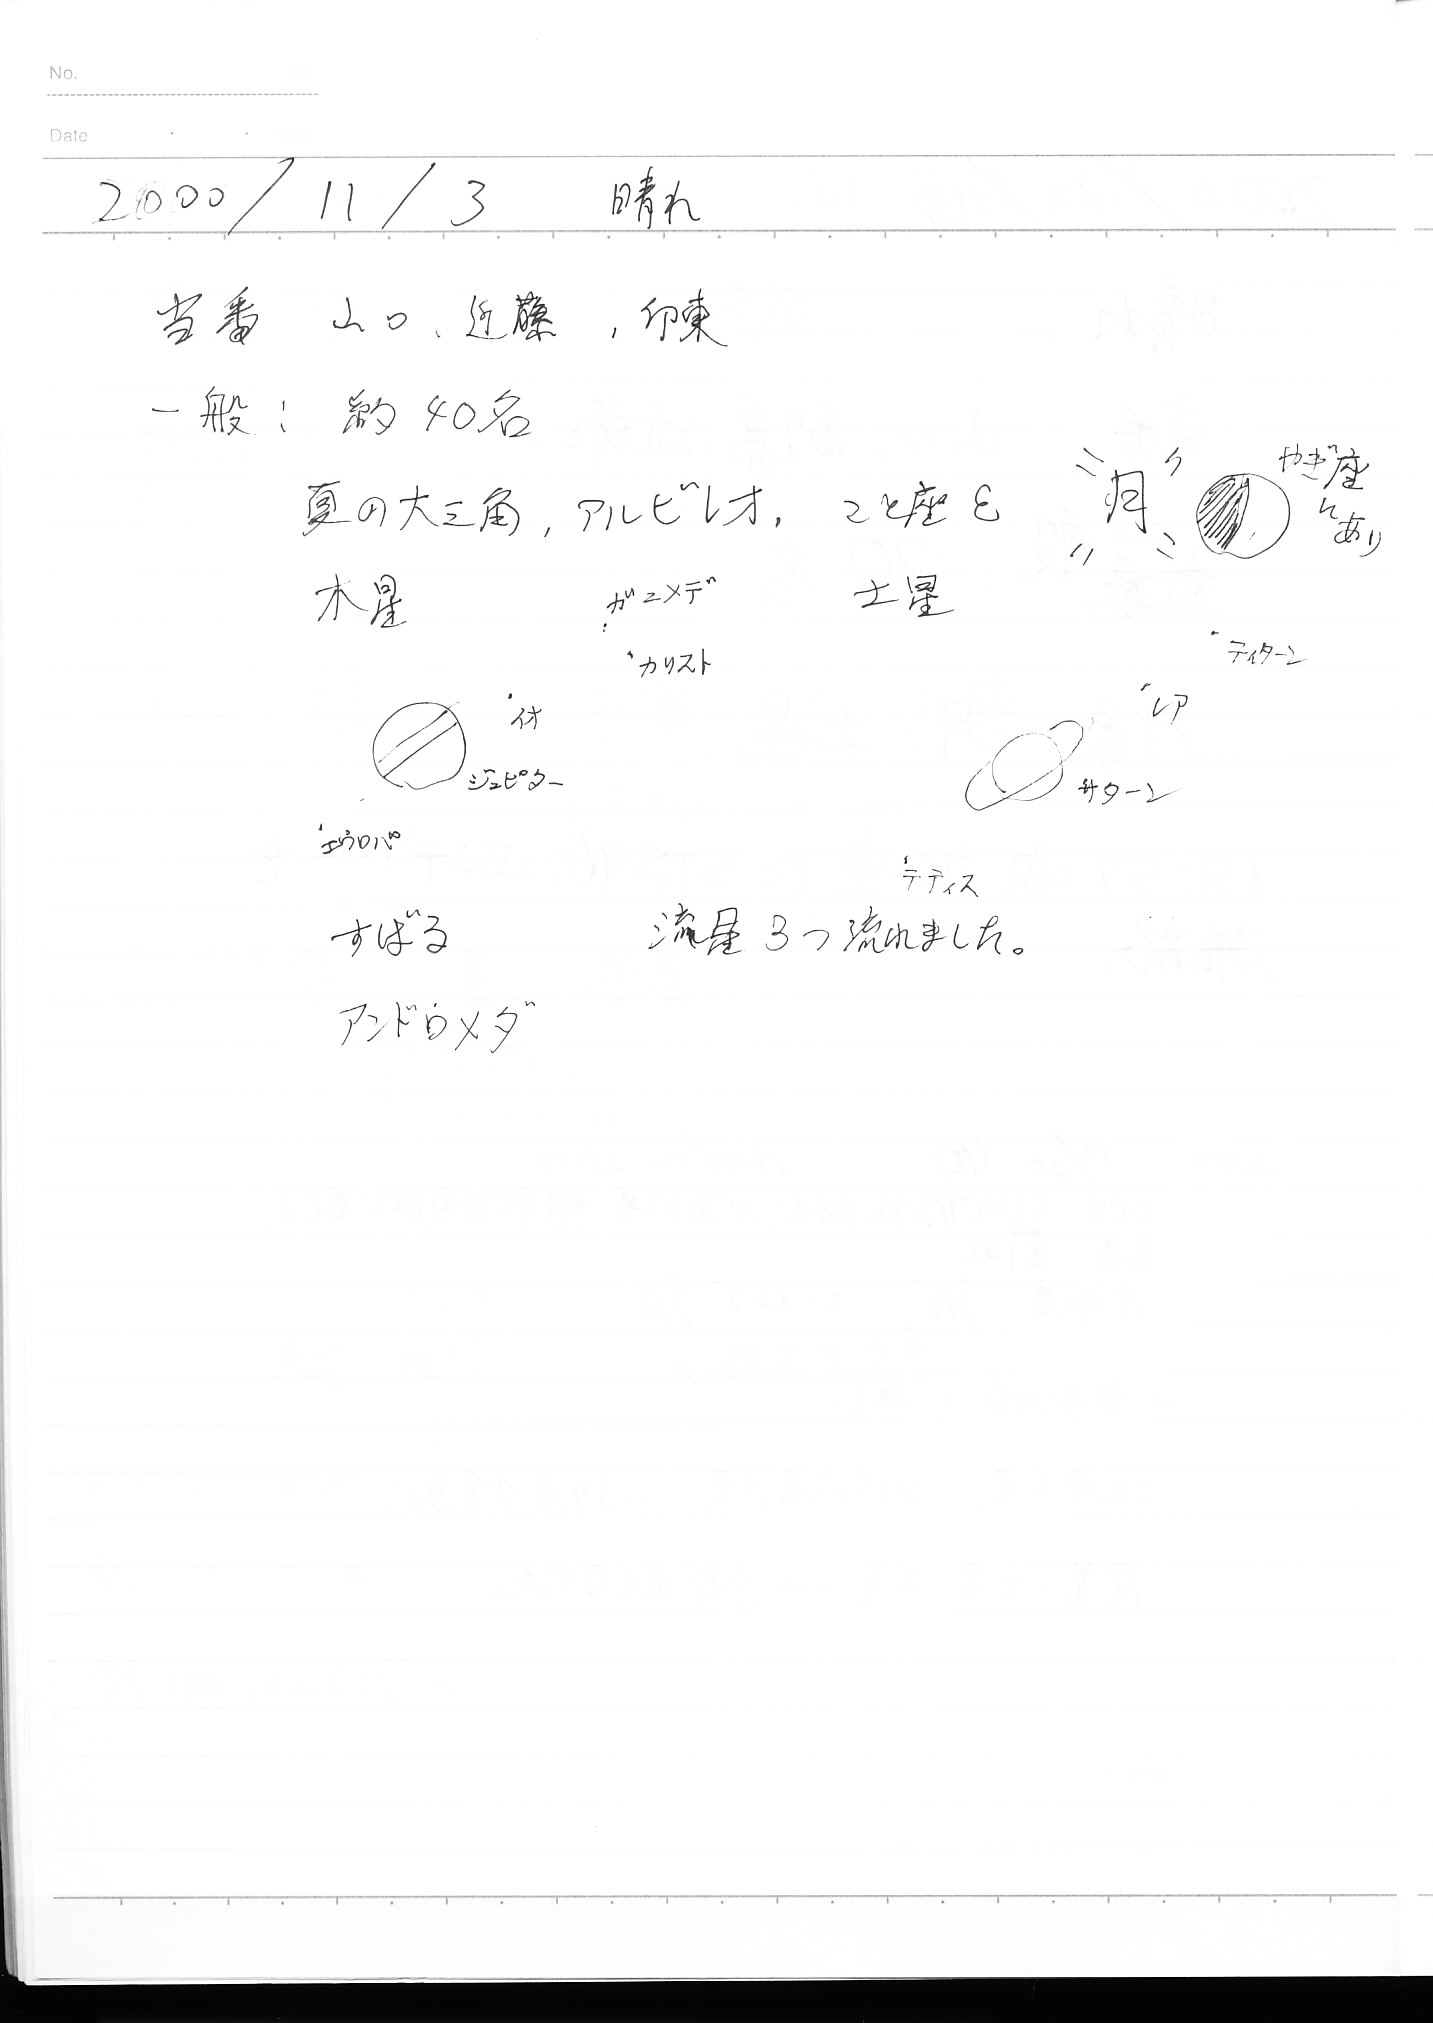 No.
Date
2000/11/3 晴れ
当番 山口、近藤、印東
一般: 約40名
夏の大三角, アルビレオ, こと座ε
月
やぎ座
に
あり
木星
ガニメデ
カリスト
イオ
ジュピター
エウロパ
土星
ティターン
レア
サターン
テティス
すばる 流星3つ流れました。
アンドロメダ